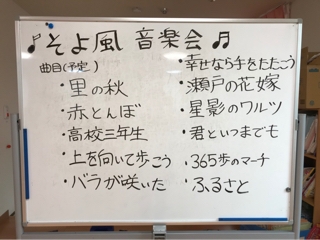 ♪そよ風 音楽会♬
曲目(予定)
・里の秋
・赤とんぼ
・高校三年生
・上を向いて歩こう
・バラが咲いた
・幸せなら手をたたこう
・瀬戸の花嫁
・星影のワルツ
・君といつまでも
・365歩のマーチ
・ふるさと